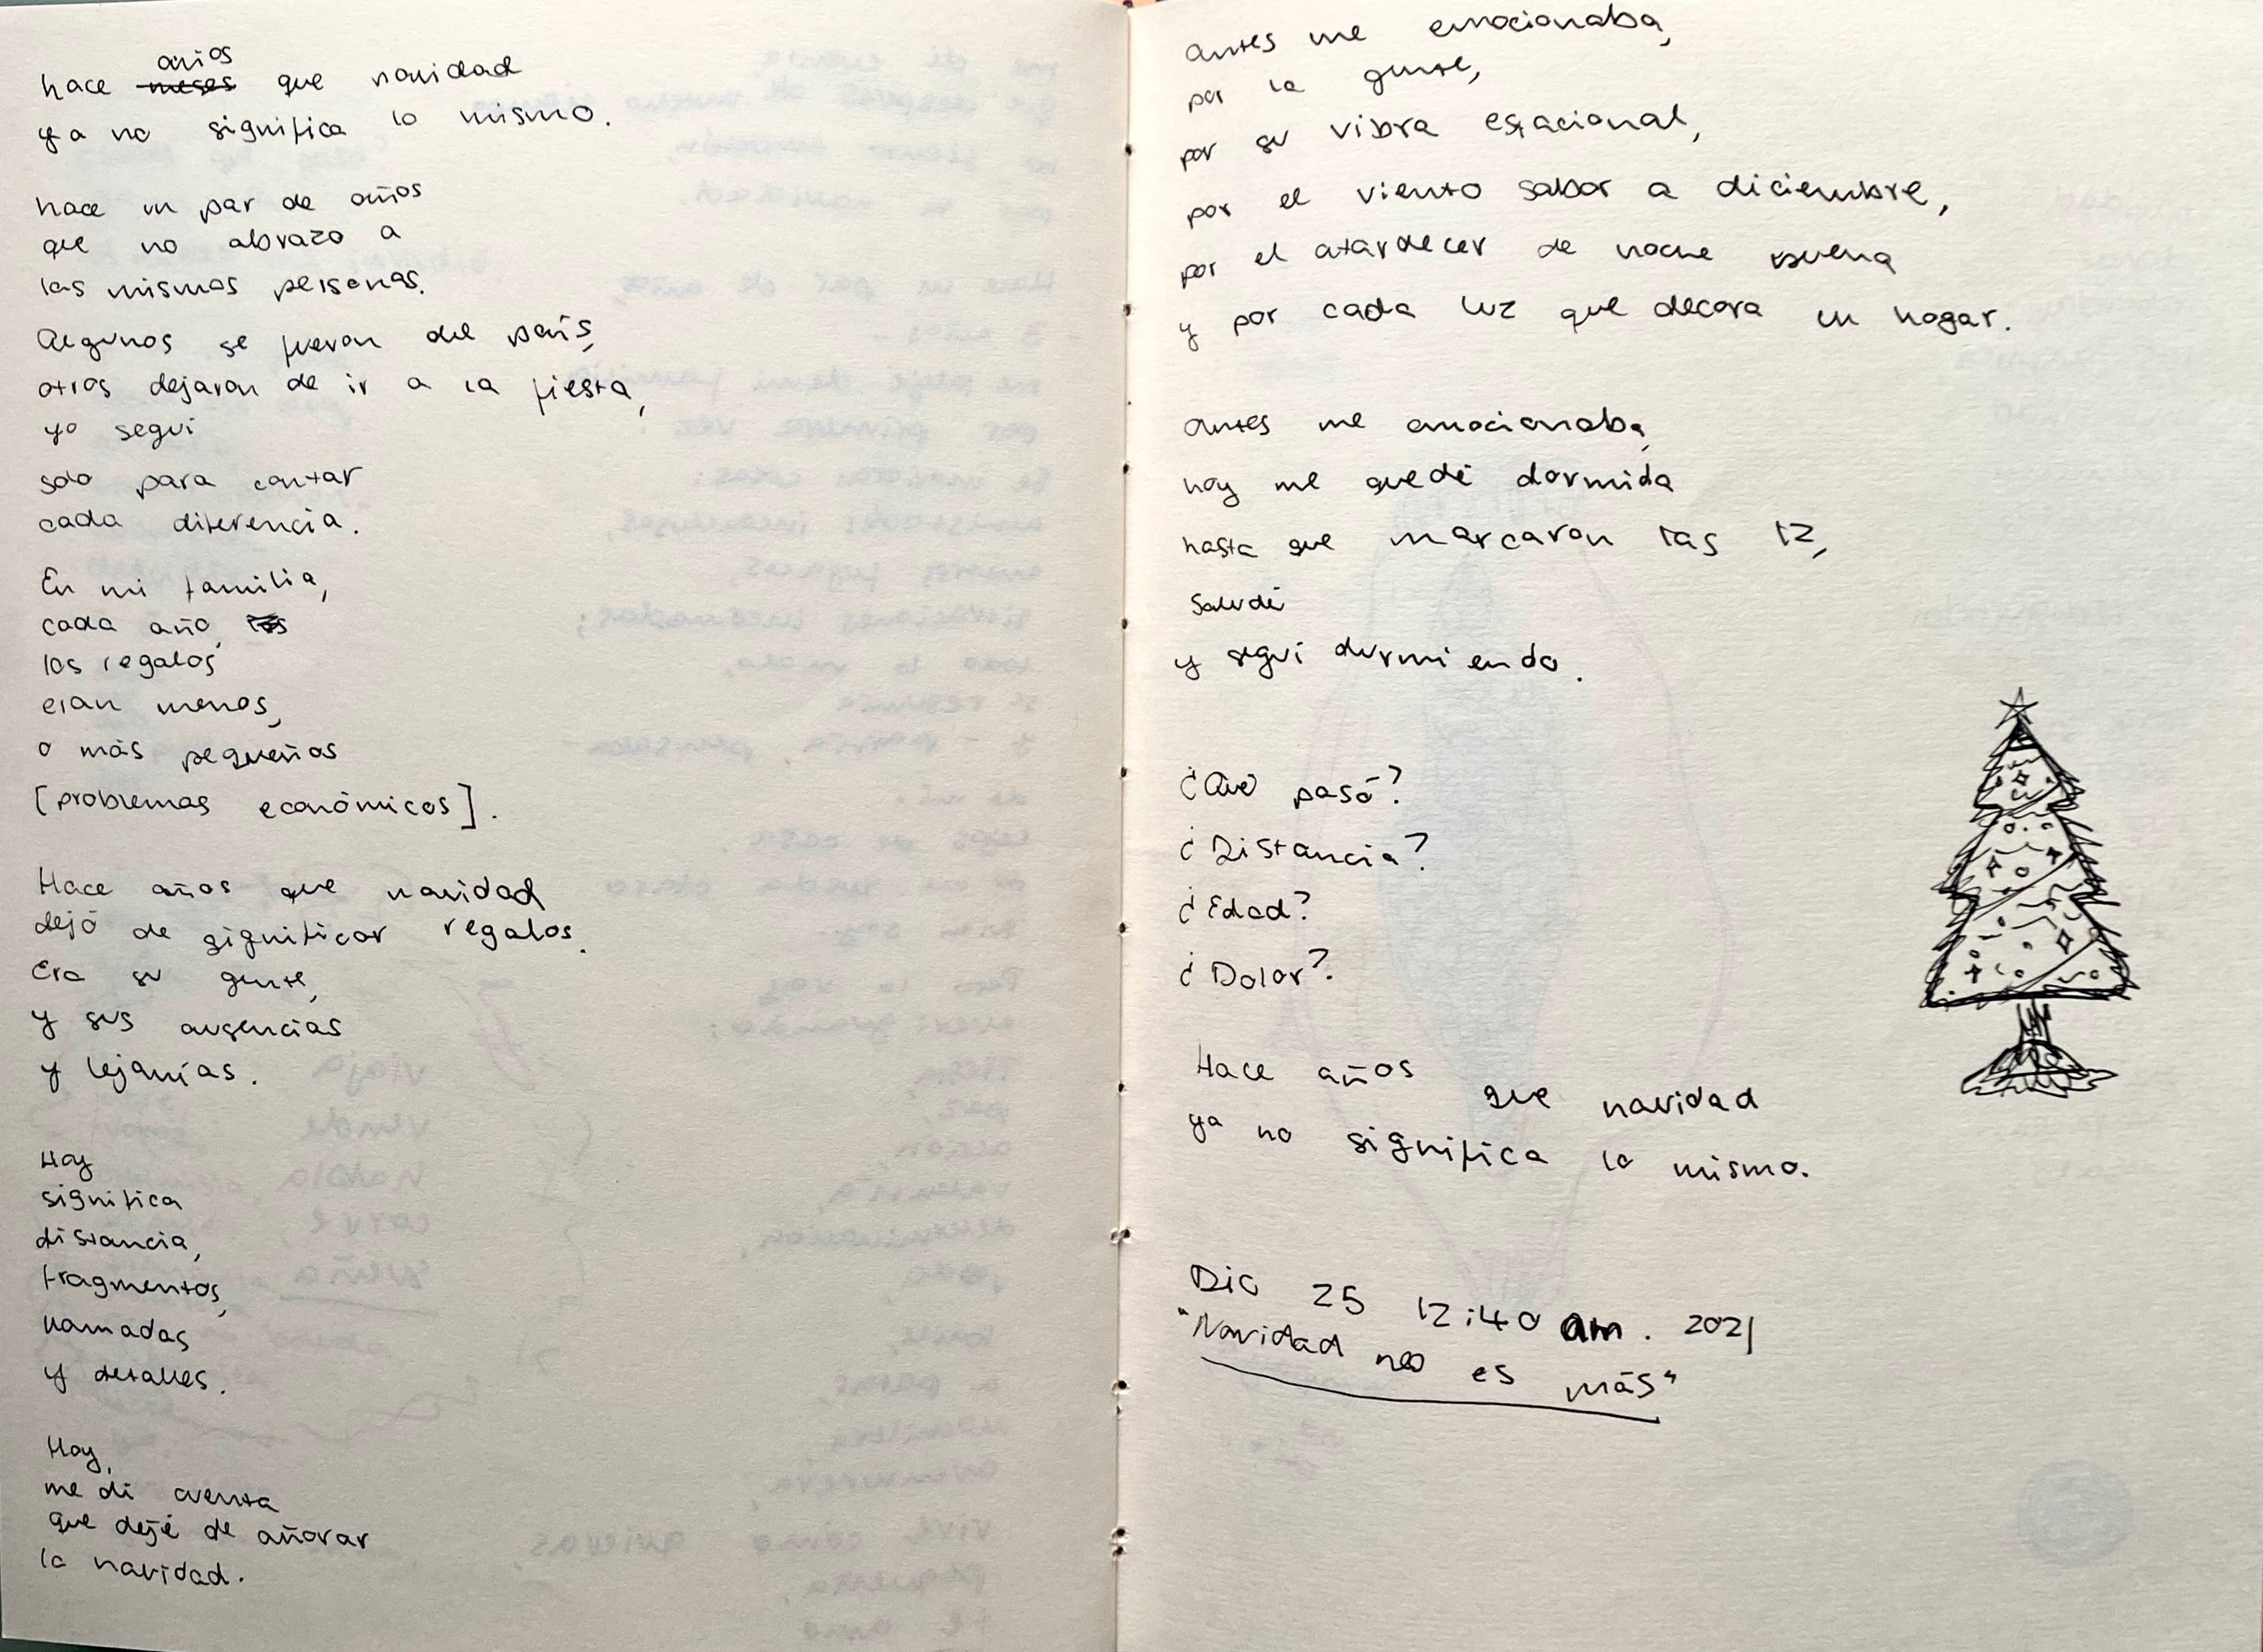 hace años meses que navidad
ya no significa lo mismo.
hace un par de años
que no abrazo a
las mismas personas.
Algunos se fueron del país,
otros dejaron de ir a la fiesta,
yo seguí
solo para contar
cada diferencia.
En mi familia,
cada año, los
los regalos
eran menos,
o más pequeños
[problemas económicos].
Hace años que navidad
dejó de significar regalos.
Era su gente,
y sus ausencias
y lejanías.
Hoy
significa
distancia,
fragmentos,
llamadas
y detalles.
Hoy,
me di cuenta
que dejé de añorar
la navidad.
antes me emocionaba,
por la gente,
por su vibra estacional,
por el viento sabor a diciembre,
por el atardecer de noche buena
y por cada luz que decora un hogar.
antes me emocionaba,
hoy me quedé dormida
hasta que marcaron las 12,
saludé
y seguí durmiendo.
¿Qué pasó?
¿Distancia?
¿Edad?
¿Dolor?
Hace años que navidad
ya no significa lo mismo.
Dic 25 12:40 am. 2021
"Navidad no es más"